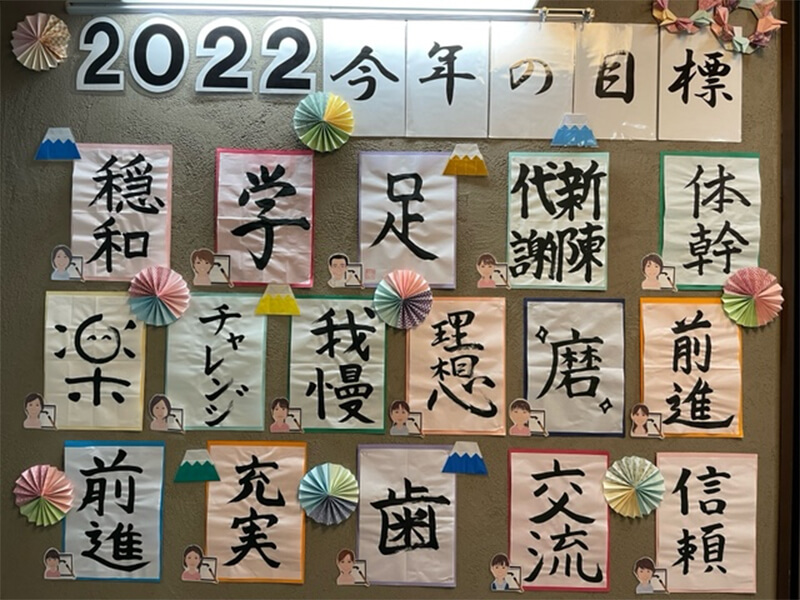 2022今年の目標
穏和
学
足
新陳代謝
体幹
楽
チャレンジ
我慢
理想
磨
前進
前進
充実
歯
交流
信頼